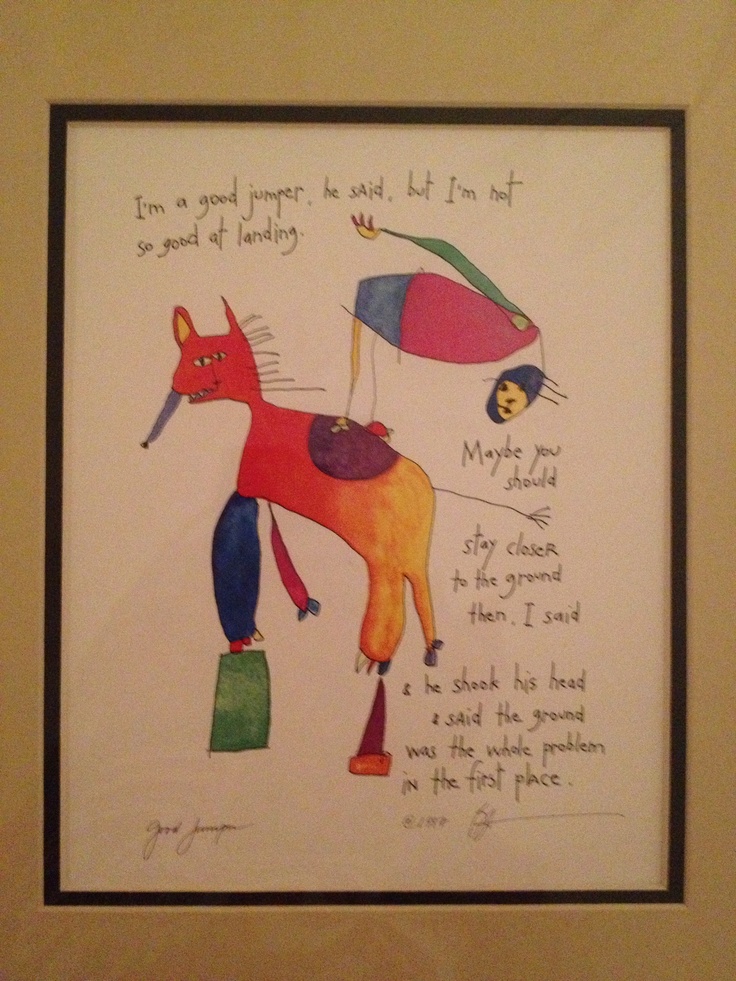 I'm a good jumper, he said, but I'm not
so good at landing.
Maybe you
should
stay closer
to the ground
then, I said
& he shook his head
& said the ground
was the whole problem
in the first place.
Good Jumper
©